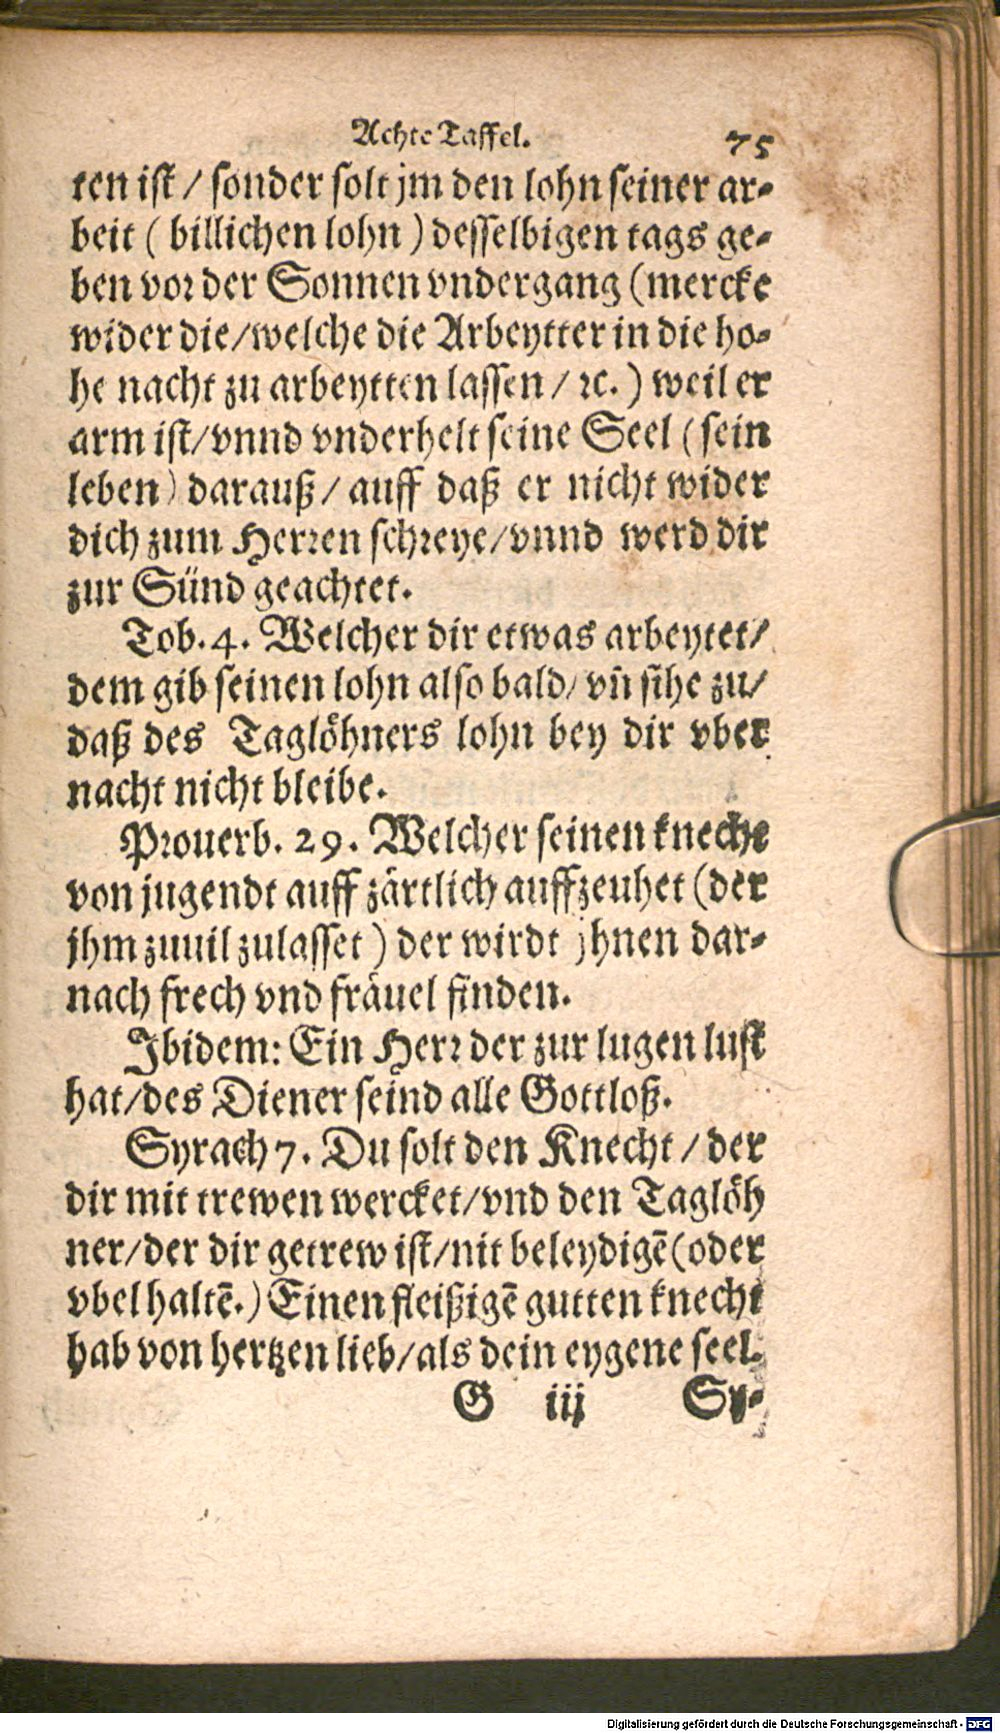 Achte Taffel. 75
ten ist / sonder solt jm den lohn seiner ar-
beit ( billichen lohn ) desselbigen tags ge-
ben vor der Sonnen vndergang (mercke
wider die/welche die Arbeytter in die ho-
he nacht zu arbeytten lassen / ꝛc.) weil er
arm ist/vnnd vnderhelt seine Seel (sein
leben) darauß / auff daß er nicht wider
dich zum Herren schreye/vnnd werd dir
zur Sünd geachtet.
Tob. 4. Welcher dir etwas arbeytet/
dem gib seinen lohn also bald/ vñ sihe zu/
daß des Taglöhners lohn bey dir vber
nacht nicht bleibe.
Prouerb. 29. Welcher seinen knecht
von jugendt auff zärtlich auffzeuhet (der
jhm zuuil zulasset ) der wirdt jhnen dar-
nach frech vnd fräuel finden.
Ibidem: Ein Herr der zur lugen lust
hat/des Diener seind alle Gottloß.
Syrach 7. Du solt den Knecht / der
dir mit trewen wercket/vnd den Taglöh
ner/der dir getrew ist/nit beleydigẽ (oder
vbel haltẽ.) Einen fleißigẽ gutten knecht
hab von hertzen lieb/als dein eygene seel.
G iij Sy-
Digitalisierung gefördert durch die Deutsche Forschungsgemeinschaft - DFG